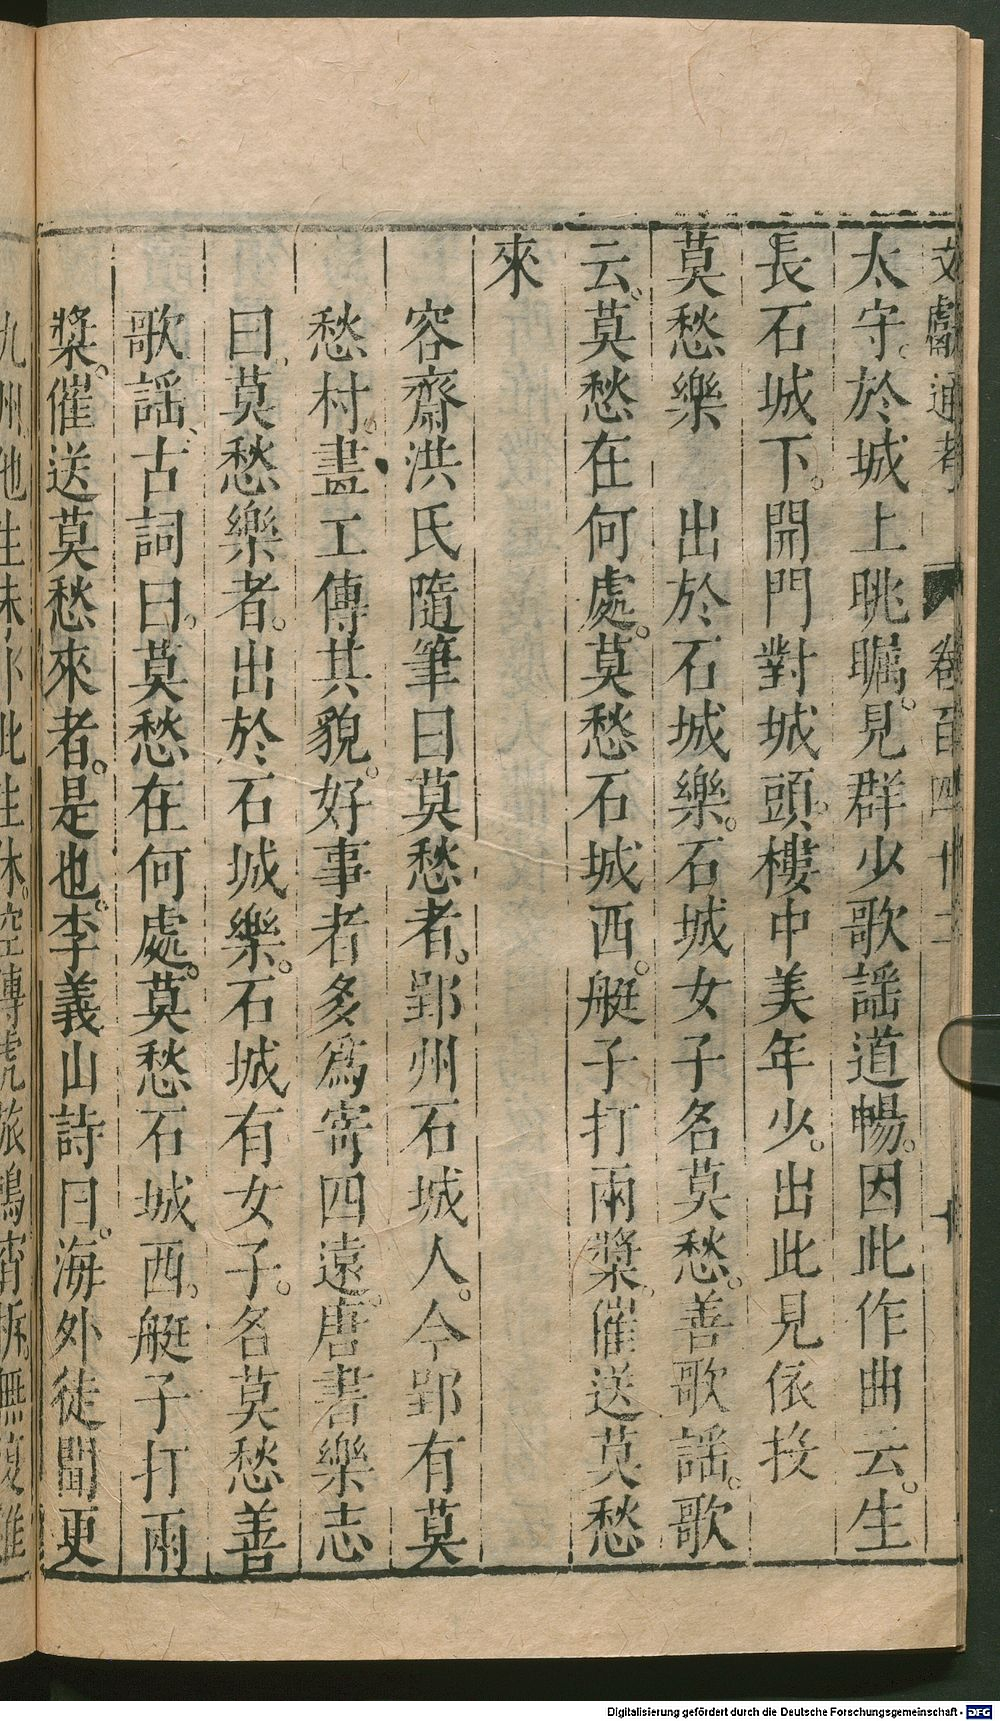 文獻通考 卷百四十二 十
太守。於城上眺矚。見群少歌謡道暢。因此作曲云。生
長石城下。開門對城頭。樓中美年少。出此見依投
莫愁樂 出於石城樂。石城女子名莫愁。善歌謡。歌
云。莫愁在何處。莫愁石城西。艇子打兩槳。催送莫愁
來
容齋洪氏隨筆曰莫愁者。郢州石城人。今郢有莫
愁村。畫工傳其貌。好事者多爲寄四遠。唐書樂志
曰。莫愁樂者。出於石城樂。石城有女子。名莫愁善
歌謡、古詞曰。莫愁在何處。莫愁石城西。艇子打兩
槳。催送莫愁來者。是也。李義山詩曰。海外徒聞更
九州他生未卜此生休。空傳虎旅鳴宵柝無復雞
Digitalisierung gefördert durch die Deutsche Forschungsgemeinschaft - DFG